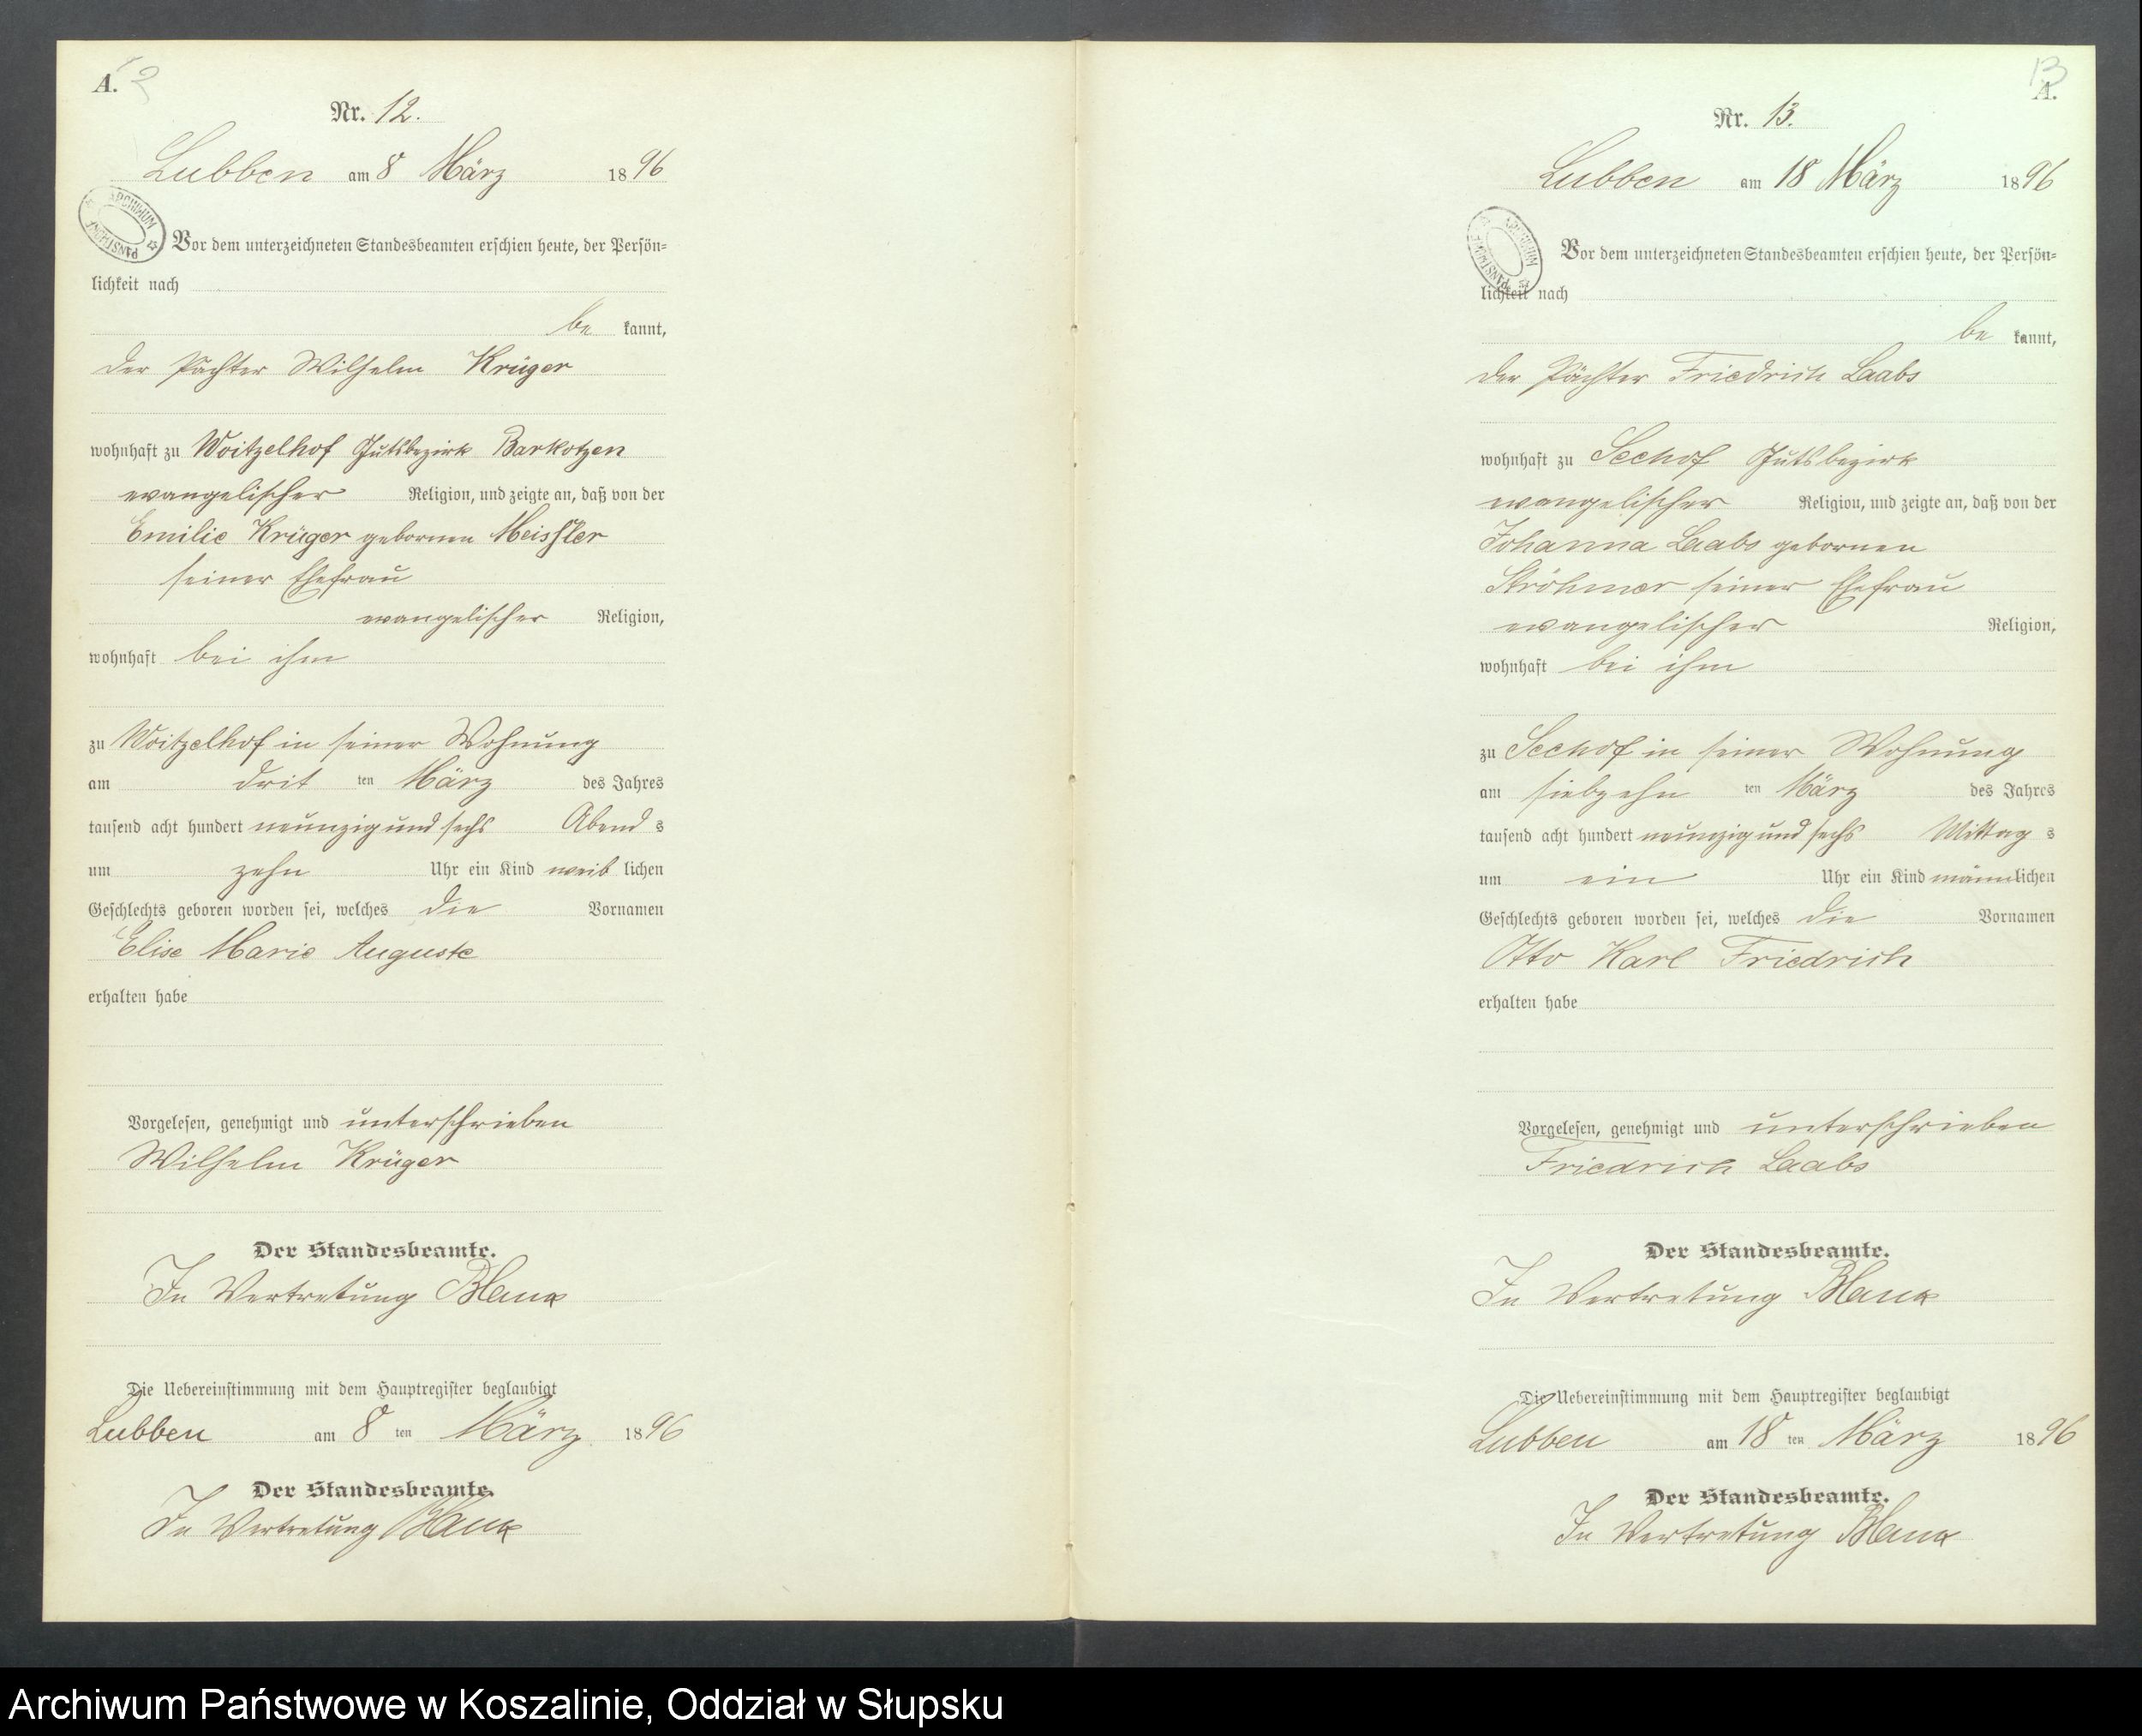 A. 12
Nr. 12.
Lubben am 8 März 1896
ARCHIWUM PAŃSTWOWE
Vor dem unterzeichneten Standesbeamten erschien heute, der Persön=
lichkeit nach
be kannt,
der Pächter Wilhelm Krüger
wohnhaft zu Woitzelhof Gutsbezirk Barkotzen
evangelischer Religion, und zeigte an, daß von der
Emilie Krüger gebornen Meissler
seiner Ehefrau
evangelischer Religion,
wohnhaft bei ihm
zu Woitzelhof in seiner Wohnung
am drit ten März des Jahres
tausend acht hundert neunzig und sechs Abend s
um zehn Uhr ein Kind weib lichen
Geschlechts geboren worden sei, welches die Vornamen
Elise Marie Auguste
erhalten habe
Vorgelesen, genehmigt und unterschrieben
Wilhelm Krüger
Der Standesbeamte.
In Vertretung
Die Uebereinstimmung mit dem Hauptregister beglaubigt
Lubben am 8 ten März 1896
Der Standesbeamte.
In Vertretung
13
A.
Nr. 13.
Lubben am 18 März 1896
ARCHIWUM PAŃSTWOWE
Vor dem unterzeichneten Standesbeamten erschien heute, der Persön=
lichkeit nach
be kannt,
der Pächter Friedrich Laabs
wohnhaft zu Seehof Gutsbezirk
evangelischer Religion, und zeigte an, daß von der
Johanna Laabs gebornen
Ströhmer seiner Ehefrau
evangelischer Religion,
wohnhaft bei ihm
zu Seehof in seiner Wohnung
am siebzehn ten März des Jahres
tausend acht hundert neunzig und sechs Mittag s
um ein Uhr ein Kind männlichen
Geschlechts geboren worden sei, welches die Vornamen
Otto Karl Friedrich
erhalten habe
Vorgelesen, genehmigt und unterschrieben
Friedrich Laabs
Der Standesbeamte.
In Vertretung
Die Uebereinstimmung mit dem Hauptregister beglaubigt
Lubben am 18 ten März 1896
Der Standesbeamte.
In Vertretung
Archiwum Państwowe w Koszalinie, Oddział w Słupsku